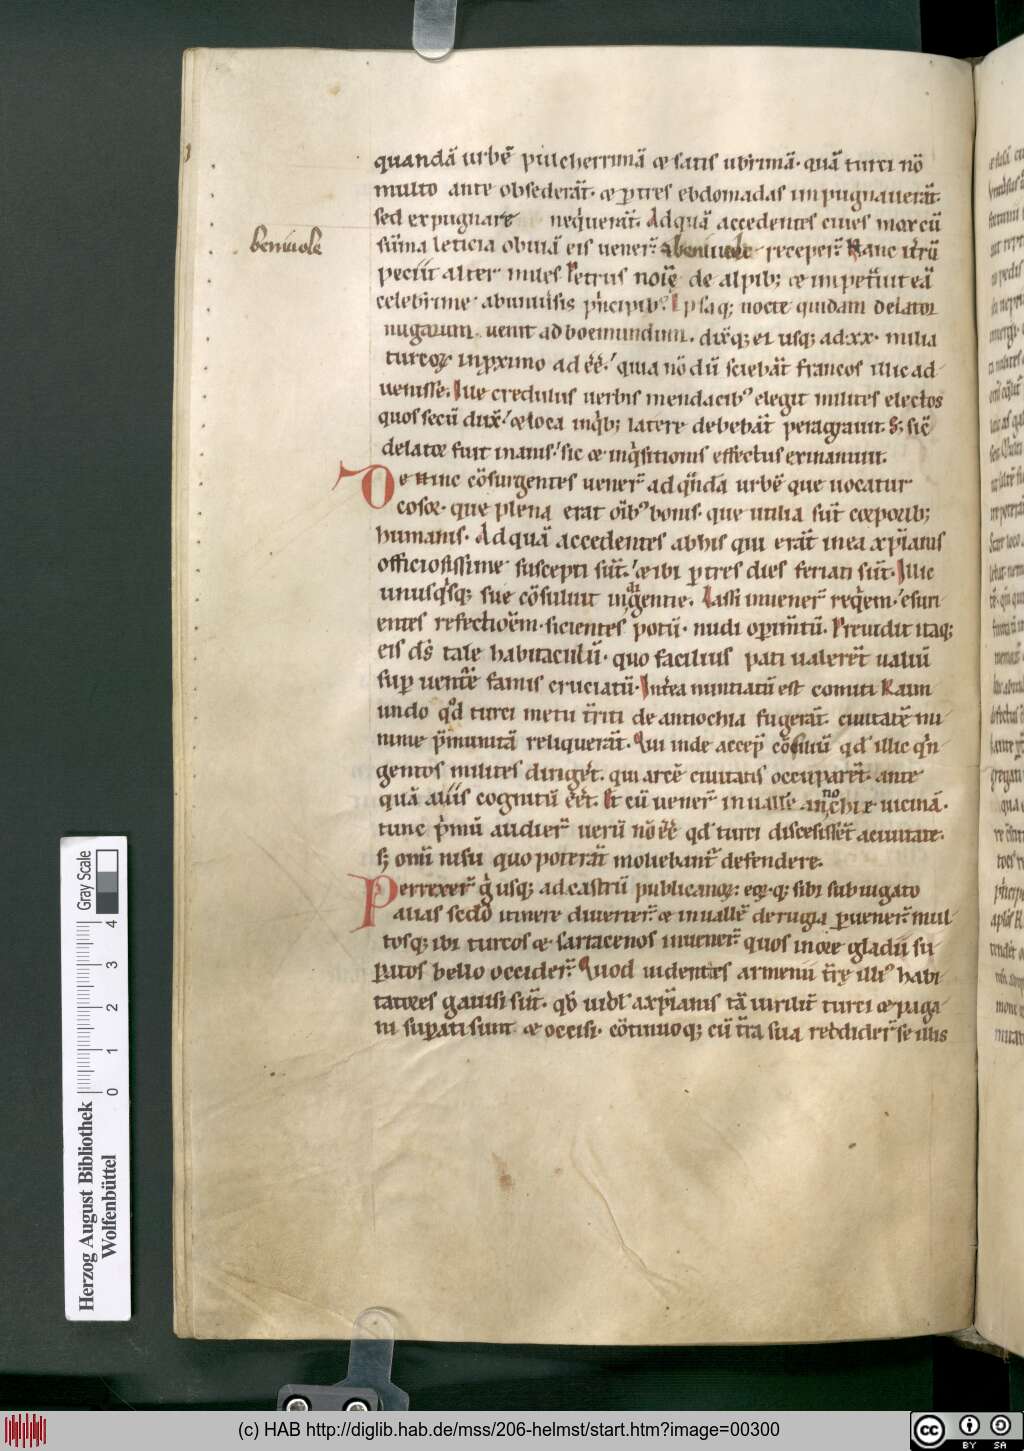 quandā urbē pulcherrimā & satis ubrimā. quā turci nō
multo ante obsederāt. & p tres ebdomadas inpugnauerāt.
sed expugnare nequerāt. Ad quā accedentes ciues mox cū
benniuole
sūma leticia obuiā eis uener̄ & beniuole receper̄. Hanc it̄rū
peciit alter miles Petrus noīe de alpib; & impet̄uit eā
celebrime abuniūsis p̄ncipib. Ipsaq; nocte quidam delator
nugarum uenit ad boemundum. dix̄q; ei usq; ad xx. milia
turcoꝝ inpximo ad eē. quia nō dū sciebāt francos illic ad
uenisse. Ille credulus uerbis mendacib elegit milites electos
quos secū dux̄. & loca inq̄b; latere debebāt peragrauit. S; sic̄
delator fuit inanis. sic & inq̄sitionis effectus exinanuit.
De hinc cōsurgentes uener̄ ad q̄ndā urbē que uocatur
cosor. que plena erat oīb bonis. que utilia sūt corporib;
humanis. Ad quā accedentes ab his qui erāt in ea xp̄ianis
officiosissime suscepti sūt. & ibi p tres dies feriati sūt. Illic
unusq̄sq; sue cōsuluit indigentie. Lassi inuener̄ req̄em. esuri
entes refectiōem. sicientes potū. nudi opim̄tū. Preuidit itaq;
eis d̄s tale habitaculū. quo facilius pati ualerēt ualiū
sup uentē famis cruciatū. Int̄ea nuntiatū est comiti Raim
undo qd turci metu t̄riti de antiochia fugerāt. ciuitatē mi
nime p̄munitā reliquerāt. Qui inde accep̄ cōsiliū qd illic q̄n
gentos milites diriḡet. qui arcē ciuitatis occuparēt. ante
quā aliis cognitū eēt. Et cū uener̄ in ualle anthiox uicinā.
no
tunc p̄mū audier̄ uerū nō eē qd turci discesissēt a ciuitate.
s; omī nisu quo poterāt moliebant defendere.
Perrexer̄ ḡ usq; ad castrū publicanoꝝ: eoꝝq; sibi subiugato
alias sedō itinere diuerter̄ & in uallē de rugia puener̄ mul
tosq; ibi turcos & sarracenos inuener̄ quos in ore gladii su
patos bello occider̄. Quod uidentes armenii t̄rę illi habi
tatores gauisi sūt. qd uidt a xp̄ianis tā uirilit̄ turci & paga
ni supati sunt & occisi. cōtinuoq; cū t̄ra sua reddider̄ se illis
Herzog August Bibliothek
Wolfenbüttel
0 1 2 3 4
Gray Scale
(c) HAB http://diglib.hab.de/mss/206-helmst/start.htm?image=00300
cc BY SA